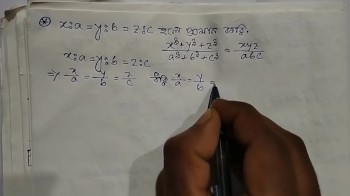 * x:a = y:b = z:c হলে প্রমাণ করি, (x³+y³+z³)/(a³+b³+c³) = xyz/abc
x:a = y:b = z:c
⇒ x/a = y/b = z/c ধরি x/a = y/b =